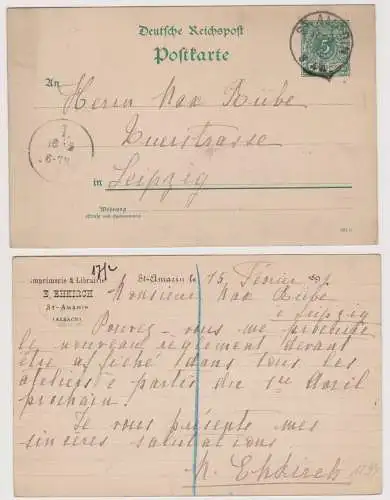 Deutsche Reichspost
Postkarte
ST. AMARIN
5
An
Herrn Max Rübe
Querstrasse
in Leipzig
Wohnung
(Straße und Hausnummer)
Imprimerie & Librairie
E. EHKIRCH
St-Amarin
(ALSACE)
St-Amarin le 15 Février 91
Monsieur Max Rübe
à Leipzig
Pouvez-vous me procurer
le nouveau règlement devant
être affiché dans tous les
ateliers à partir du 1er Avril
prochain?
Je vous présente mes
sincères salutations
Ehkirch